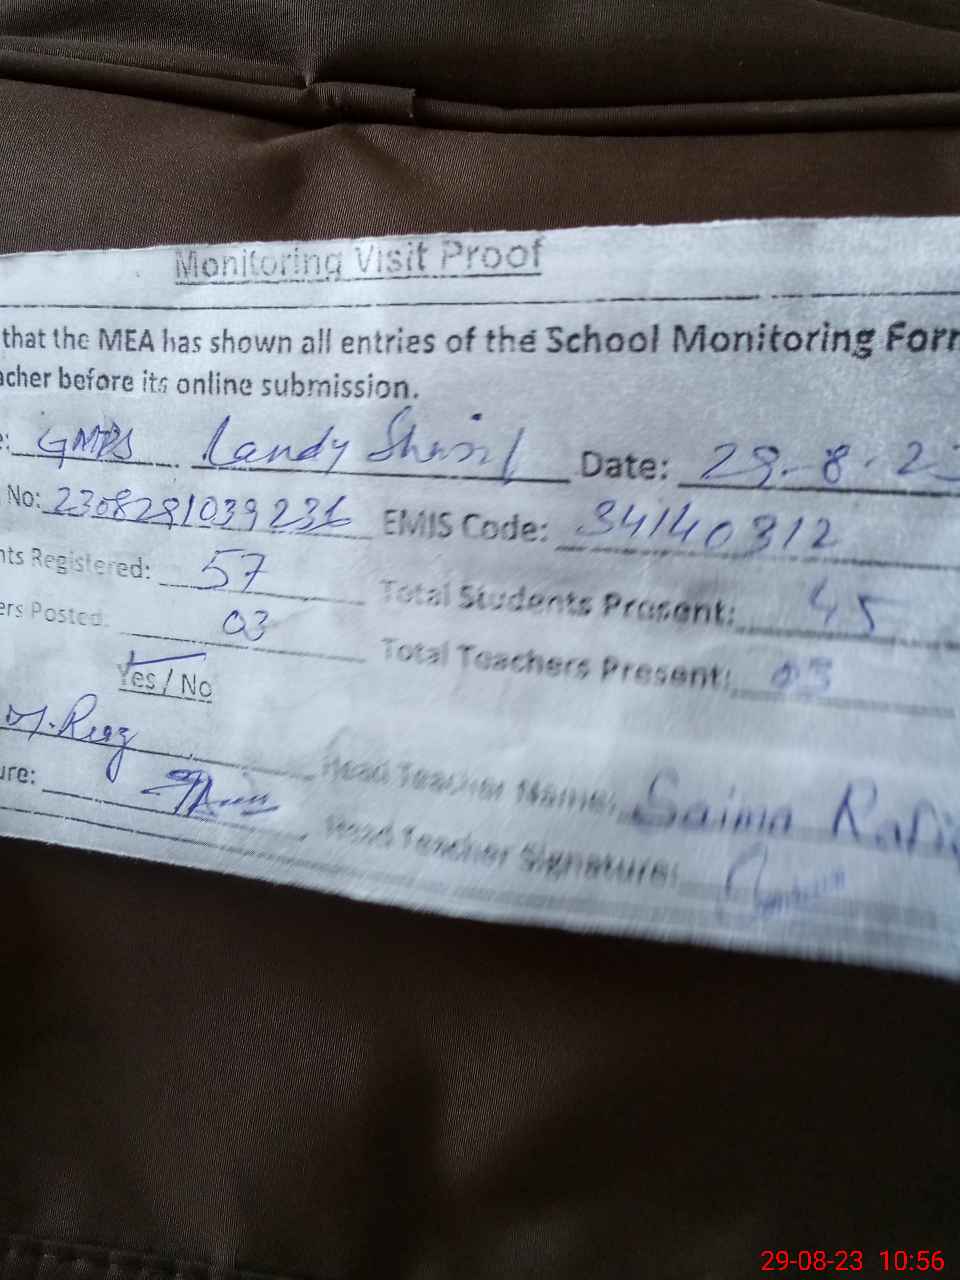 Monitoring Visit Proof
that the MEA has shown all entries of the School Monitoring Forr
acher before its online submission.
e: GMPS Landy Sharif Date: 29-8-23
No: 230829103923 EMIS Code: 34140312
nts Registered: 57 Total Students Present: 45
ers Posted: 03 Total Teachers Present: 03
Yes / No
M. Riaz Head Teacher Name: Saima Rafi
ure: Head Teacher Signature:
29-08-23 10:56